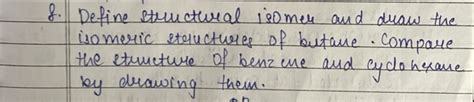 8. Define structural isomer and draw the
isomeric structures of butane. Compare
the structure of benzene and cyclohexane
by drawing them.